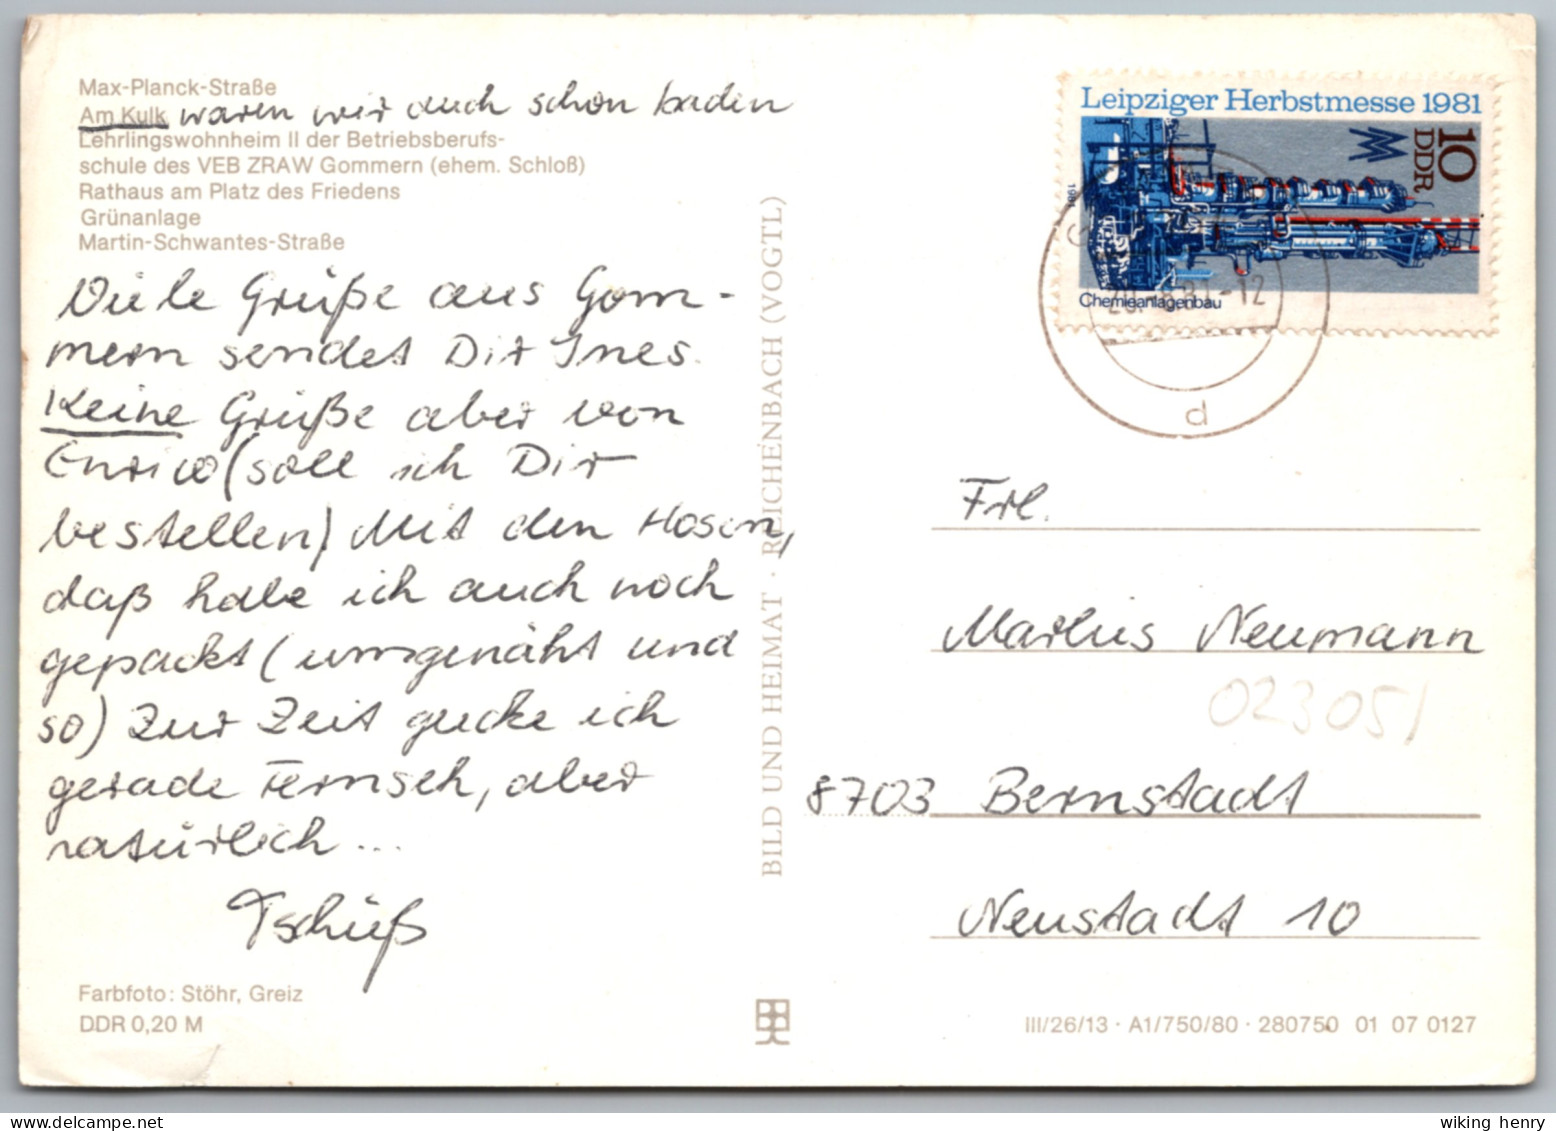 Max-Planck-Straße
Am Kulk waren wir auch schon baden
Lehrlingswohnheim II der Betriebsberufs-
schule des VEB ZRAW Gommern (ehem. Schloß)
Rathaus am Platz des Friedens
Grünanlage
Martin-Schwantes-Straße
Viele Grüße aus Gom-
mern sendet Dir Ines.
Keine Grüße aber von
Enrico (soll ich Dir
bestellen) Mit den Hosen,
daß habe ich auch noch
gepackt (umgenäht und
so) Zur Zeit gucke ich
gerade Fernseh, aber
natürlich ...
Tschüß
Farbfoto: Stöhr, Greiz
DDR 0,20 M
BILD UND HEIMAT · REICHENBACH (VOGTL)
Leipziger Herbstmesse 1981
10
DDR
1981
Chemieanlagenbau
-12
d
Frl.
Marlies Neumann
023051
8703 Bernstadt
Neustadt 10
III/26/13 · A1/750/80 · 280750 01 07 0127
wiking henry